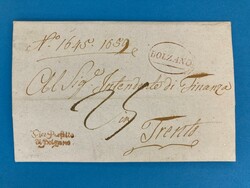 N.º 1645. 1652
BOLZANO
Al Sigº Intendente di Finanza
25
in
Trento
di Bolzano